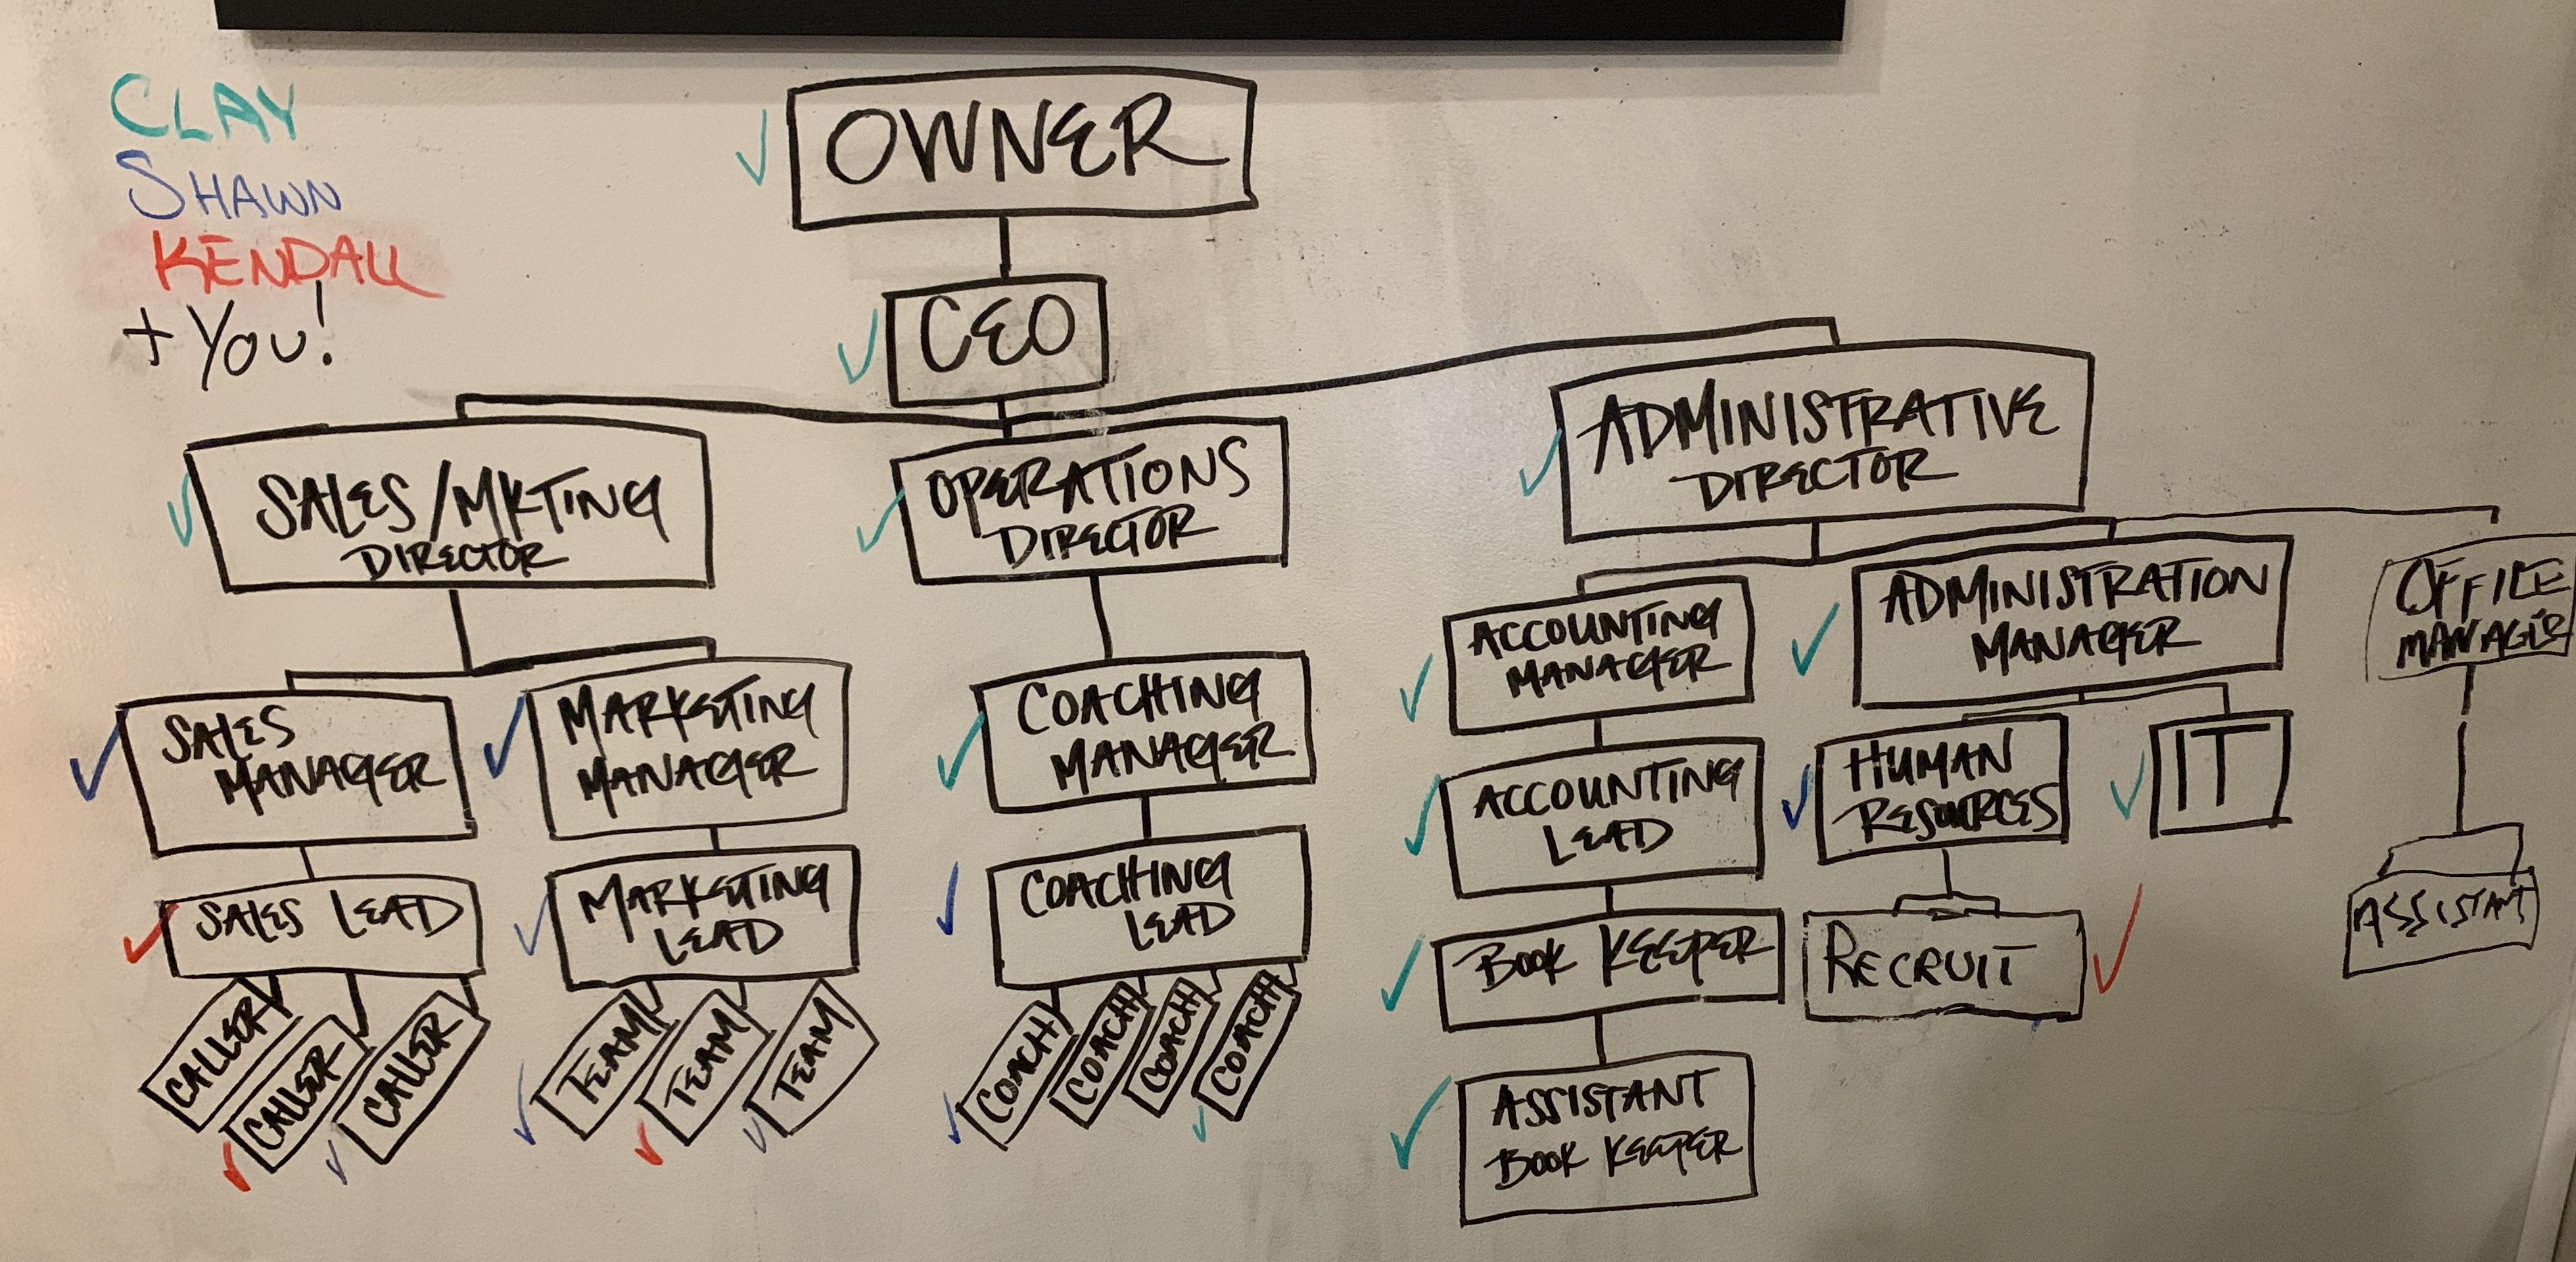 CLAY
SHAWN
KENDALL
+ YOU!
OWNER
CEO
SALES/MKTING
DIRECTOR
OPERATIONS
DIRECTOR
ADMINISTRATIVE
DIRECTOR
SALES
MANAGER
MARKETING
MANAGER
COACHING
MANAGER
ACCOUNTING
MANAGER
ADMINISTRATION
MANAGER
OFFICE
MANAGER
SALES LEAD
MARKETING
LEAD
COACHING
LEAD
ACCOUNTING
LEAD
HUMAN
RESOURCES
IT
CALLER
CALLER
CALLER
TEAM
TEAM
TEAM
COACH
COACH
COACH
COACH
BOOK KEEPER
RECRUIT
ASSISTANT
ASSISTANT
BOOK KEEPER